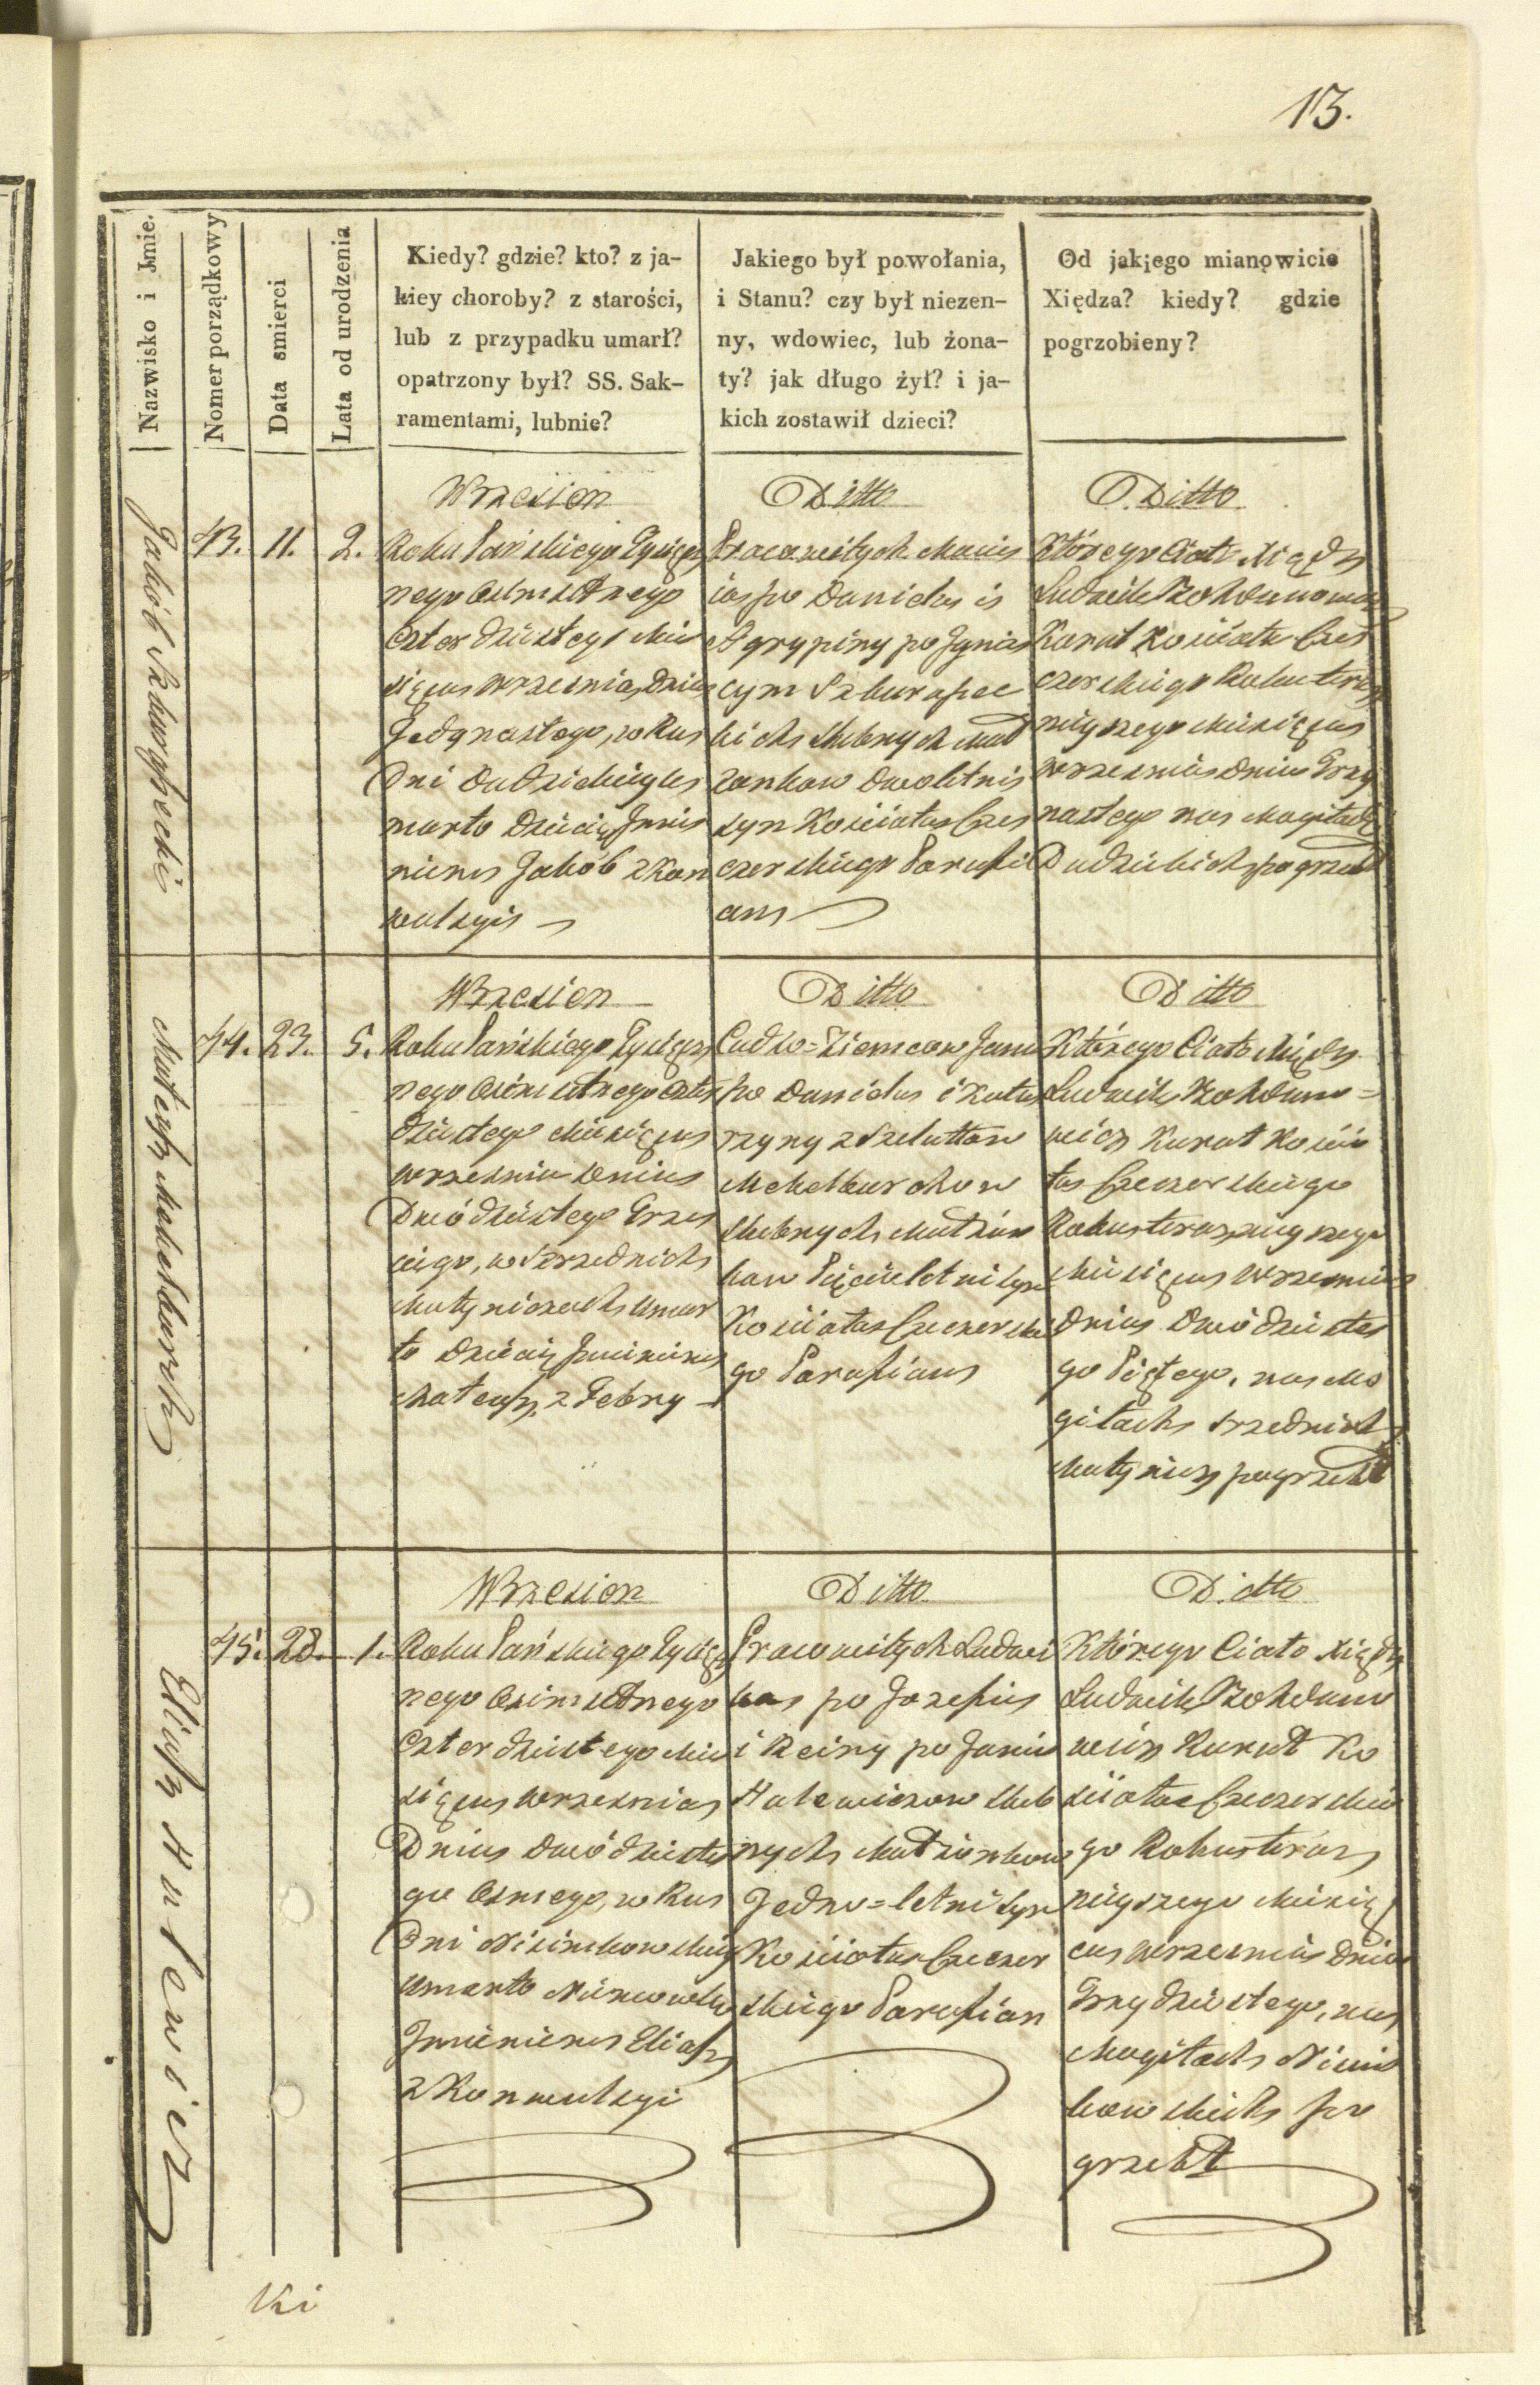 13.
Nazwisko i Jmie.
Nomer porządkowy
Data smierci
Lata od urodzenia
Kiedy? gdzie? kto? z ja-
kiey choroby? z starości,
lub z przypadku umarł?
opatrzony był? SS. Sak-
ramentami, lubnie?
Jakiego był powołania,
i Stanu? czy był nieżen-
ny, wdowiec, lub żona-
ty? jak długo żył? i ja-
kich zostawił dzieci?
Od jakiego mianowicie
Xiędza? kiedy? gdzie
pogrzobieny?
Jakób
43.
11.
2.
Wrzesien
Roku Pańskiego Tysiącz
nego Osmsetnego
Czterdziestego Mie
siąca Września Dnia
Jedynastego, w Rus
Dni Dudzickiey U
marło Dziecię Jmie
niem Jakób z Kon
wulsyi
Ditto
Pracowitych Macie
ja po Daniela i
Agrypiny po Jgna
cym
kich slubnych Mał
żonkow Dwoletni
syn Kościoła Cze
czerskiego Parafi
an
Ditto
Którego Ciało Xiądz
Ludwik Bohdanowicz
Kurat Kościoła Cze
czerskiego Roku teraz
nieyszego Miesiąca
Września Dnia Trzy
nastego na Mogiłach
Dudzickich pogrzebł
Mateusz
44.
23.
5.
Wrzesien
Roku Pańskiego Tysiącz
nego Osimsetnego Czter
dziestego Miesiąca
Września Dnia
Dwódziestego Trze
ciego, w Srzednich
Małyniczach Umar
ło Dziecię Jmieniem
Mateusz, z Febry
Ditto
Cudzo=Ziemcow Jana
po Daniela i Kata
rzyny z
slubnych Małżon
kow Pięcioletni syn
Kościoła Czeczerskie
go Parafian
Ditto
Którego Ciało Xiądz
Ludwik Bohdano=
wicz Kurat Kościo
ła Czeczerskiego
Roku teraznieyszego
Miesiąca Września
Dnia Dwódzieste
go Piątego, na Mo
giłach Srzednich
Małynicz pogrzebł
Eliasz Halewicz
45.
28.
1.
Wrzesien
Roku Pańskiego Tysiącz
nego Osimsetnego
Czterdziestego Mie
siąca Września
Dnia Dwódzieste
go Osmego, w Rus
Dni Nisimkowskiey
Umarło Niemowlę
Jmieniem Eliasz
z Konwulsyi
Ditto
Pracowitych Ludwi
ka po Jozefie
i po Janie
Halewiczow slub
nych Małżonkow
Jedno=letni syn
Kościoła Czeczer
skiego Parafian
Ditto
Którego Ciało Xiądz
Ludwik Bohdano
wicz Kurat Ko
ścioła Czeczerskie
go Roku teraz
nieyszego Miesią
ca Września Dnia
Trzydziestego, na
Mogiłach Nisim
kowskich po
grzebł
Ki